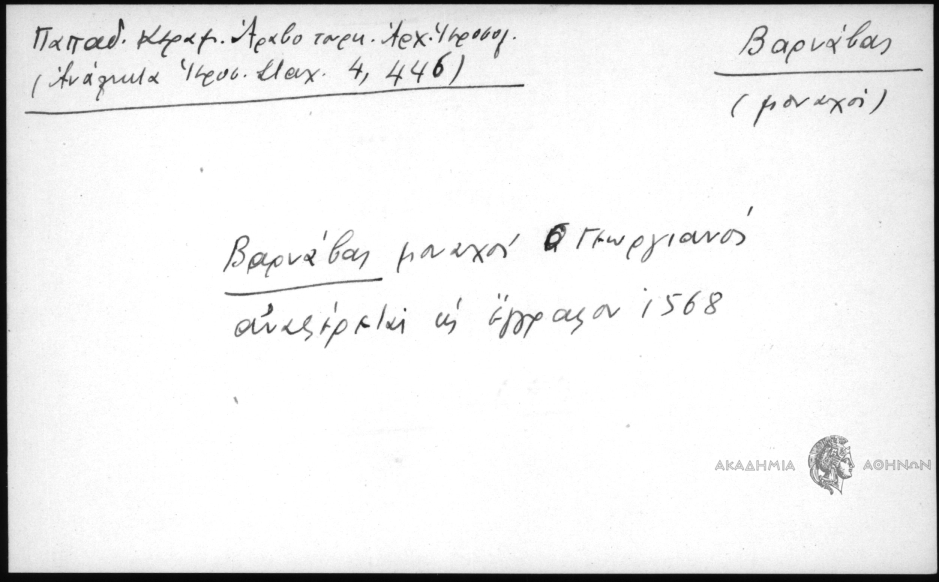 Παπαδ. Κεραμ. Ἀραβοτουρκ. Ἀρχ. Ἱεροσολ.
(Ἀνάλεκτα Ἱεροσ. Σταχ. 4, 446)
Βαρνάβας
(μοναχός)
Βαρνάβας μοναχός ὁ Γεωργιανός
ἀναφέρεται εἰς ἔγγραφον 1568
ΑΚΑΔΗΜΙΑ ΑΘΗΝΩΝ